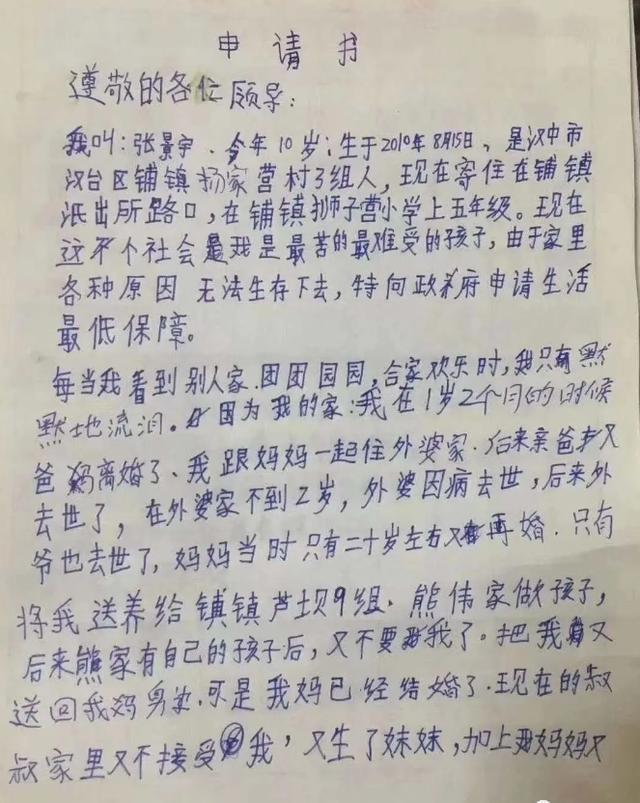 申请书
尊敬的各位领导:
我叫:张景宇、今年10岁;生于2010年8月15日,是汉中市
汉台区铺镇杨家营村3组人,现在寄住在铺镇
派出所路口,在铺镇狮子营小学上五年级。现在
这个社会是我是最苦的最难受的孩子,由于家里
各种原因 无法生存下去,特向政府申请生活
最低保障。
每当我看到别人家.团团园园,合家欢乐时,我只有默
默地流泪。因为我的家:我在1岁2个月的时候
爸妈离婚了、我跟妈妈一起住外婆家.后来亲爸又
去世了,在外婆家不到2岁,外婆因病去世,后来外
爷也去世了,妈妈当时只有二十岁左右又再婚.只有
将我送养给镇镇芦坝9组.熊伟家做孩子,
后来熊家有自己的孩子后,又不要我了。把我又
送回我妈身边.可是我妈已经结婚了.现在的叔
叔家里又不接受我,又生了妹妹,加上我妈妈又